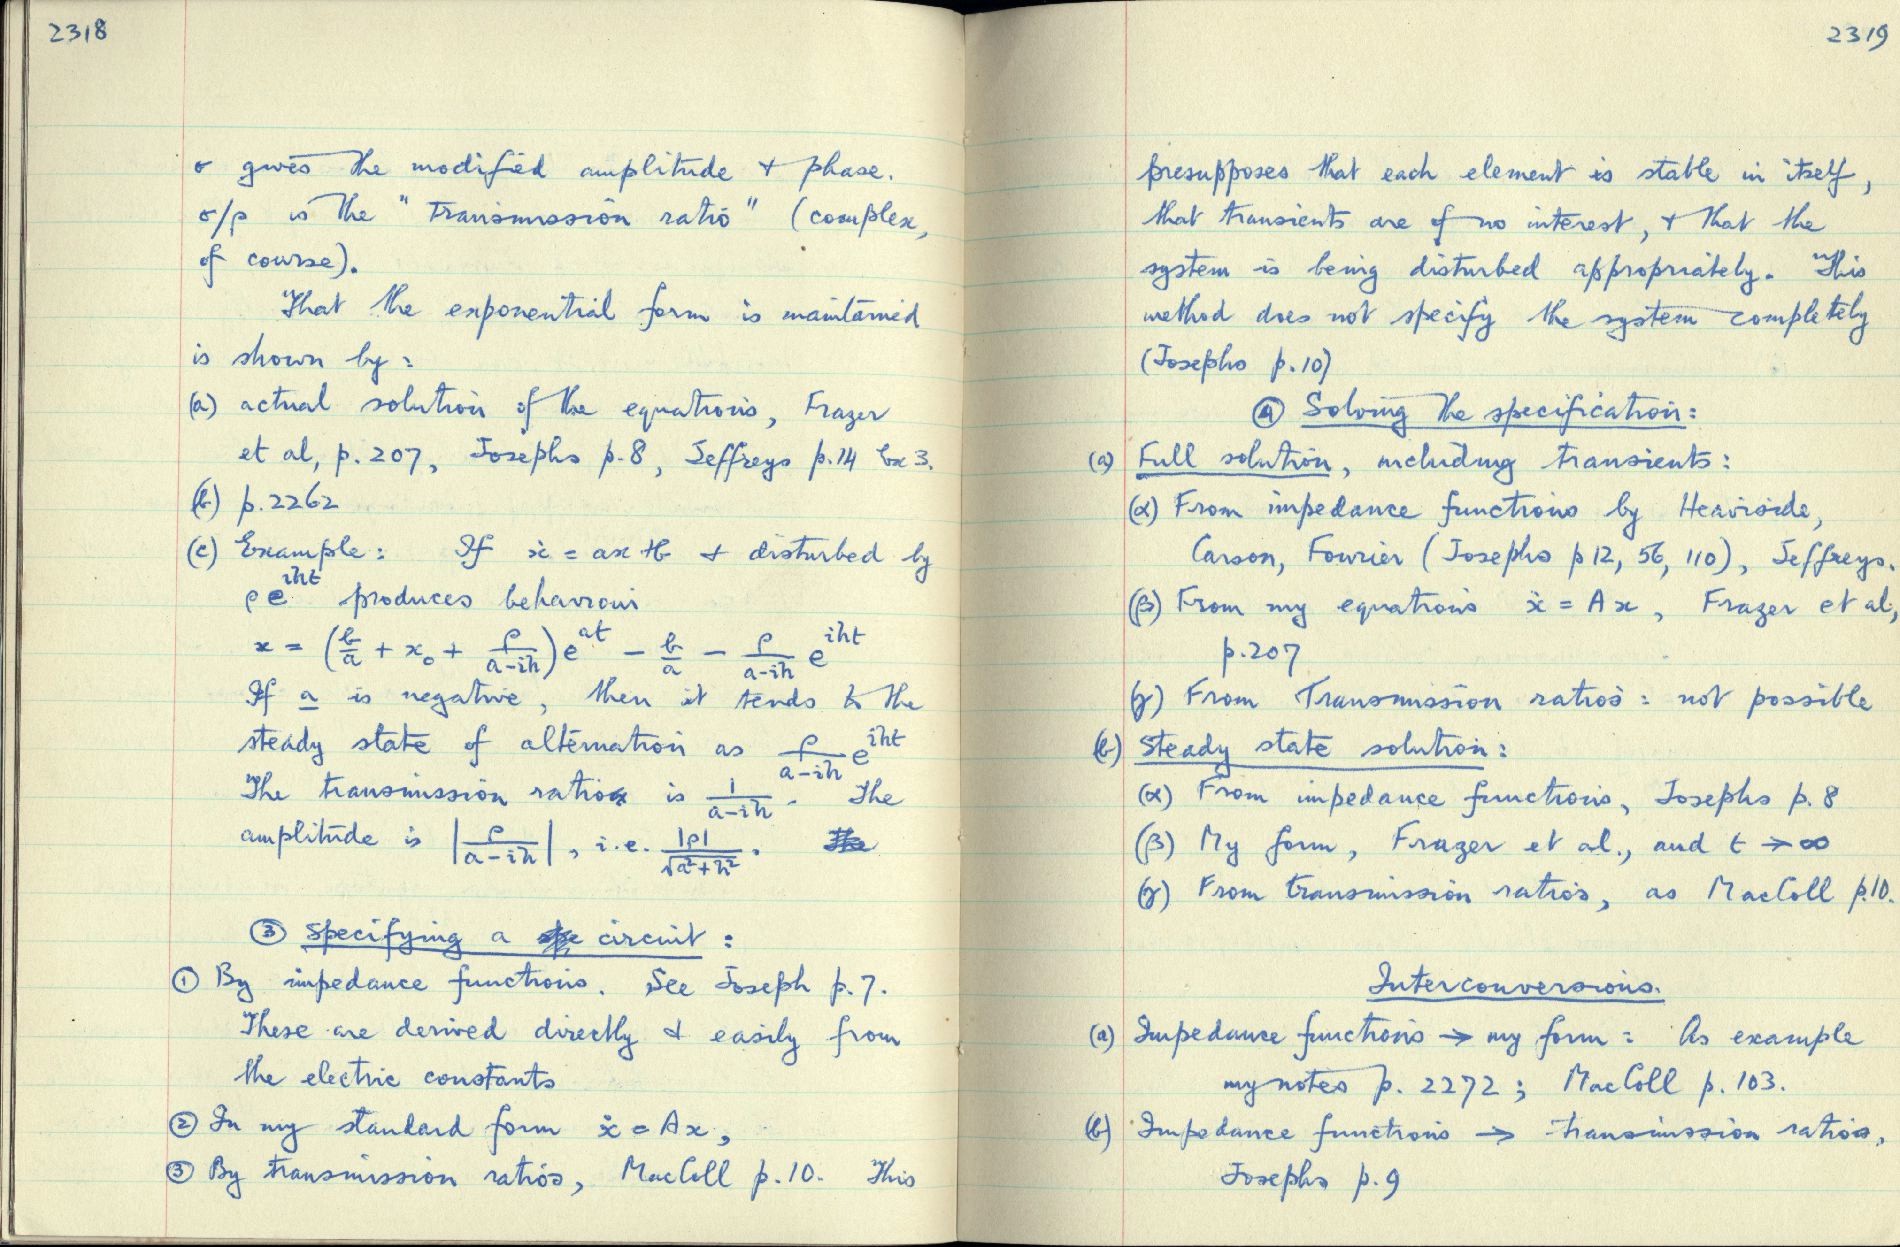 2318
σ gives the modified amplitude & phase.
σ/ρ is the "Transmission ratio" (complex,
of course).
That the exponential form is maintained
is shown by:
(a) actual solution of the equations, Frazer
et al, p.207, Josephs p.8, Jeffreys p.14 Ex 3.
(b) p.2262
(c) Example: If ẋ = ax+b & disturbed by
ρe^{iht} produces behaviour
x = (b/a + x₀ + ρ/(a-ih))e^{at} - b/a - ρ/(a-ih) e^{iht}
If a is negative, then it tends to the
steady state of alternation as ρ/(a-ih) e^{iht}
The transmission ratio is 1/(a-ih). The
amplitude is |ρ/(a-ih)|, i.e. |ρ|/√(a²+h²).
③ Specifying a circuit:
① By impedance functions. See Joseph p.7.
These are derived directly & easily from
the electric constants
② In my standard form ẋ = Ax,
③ By transmission ratios, MacColl p.10. This
2319
presupposes that each element is stable in itself,
that transients are of no interest, & that the
system is being disturbed appropriately. This
method does not specify the system completely
(Josephs p.10)
④ Solving the specification:
(a) Full solution, including transients:
(α) From impedance functions by Heaviside,
Carson, Fourier (Josephs p 12, 56, 110), Jeffreys.
(β) From my equations ẋ = Ax, Frazer et al,
p.207
(γ) From Transmission ratios: not possible
(b) Steady state solution:
(α) From impedance functions, Josephs p.8
(β) My form, Frazer et al., and t → ∞
(γ) From transmission ratios, as MacColl p.10.
Interconversions.
(a) Impedance functions → my form: As example
my notes p. 2272; MacColl p. 103.
(b) Impedance functions → transmission ratios,
Josephs p.9